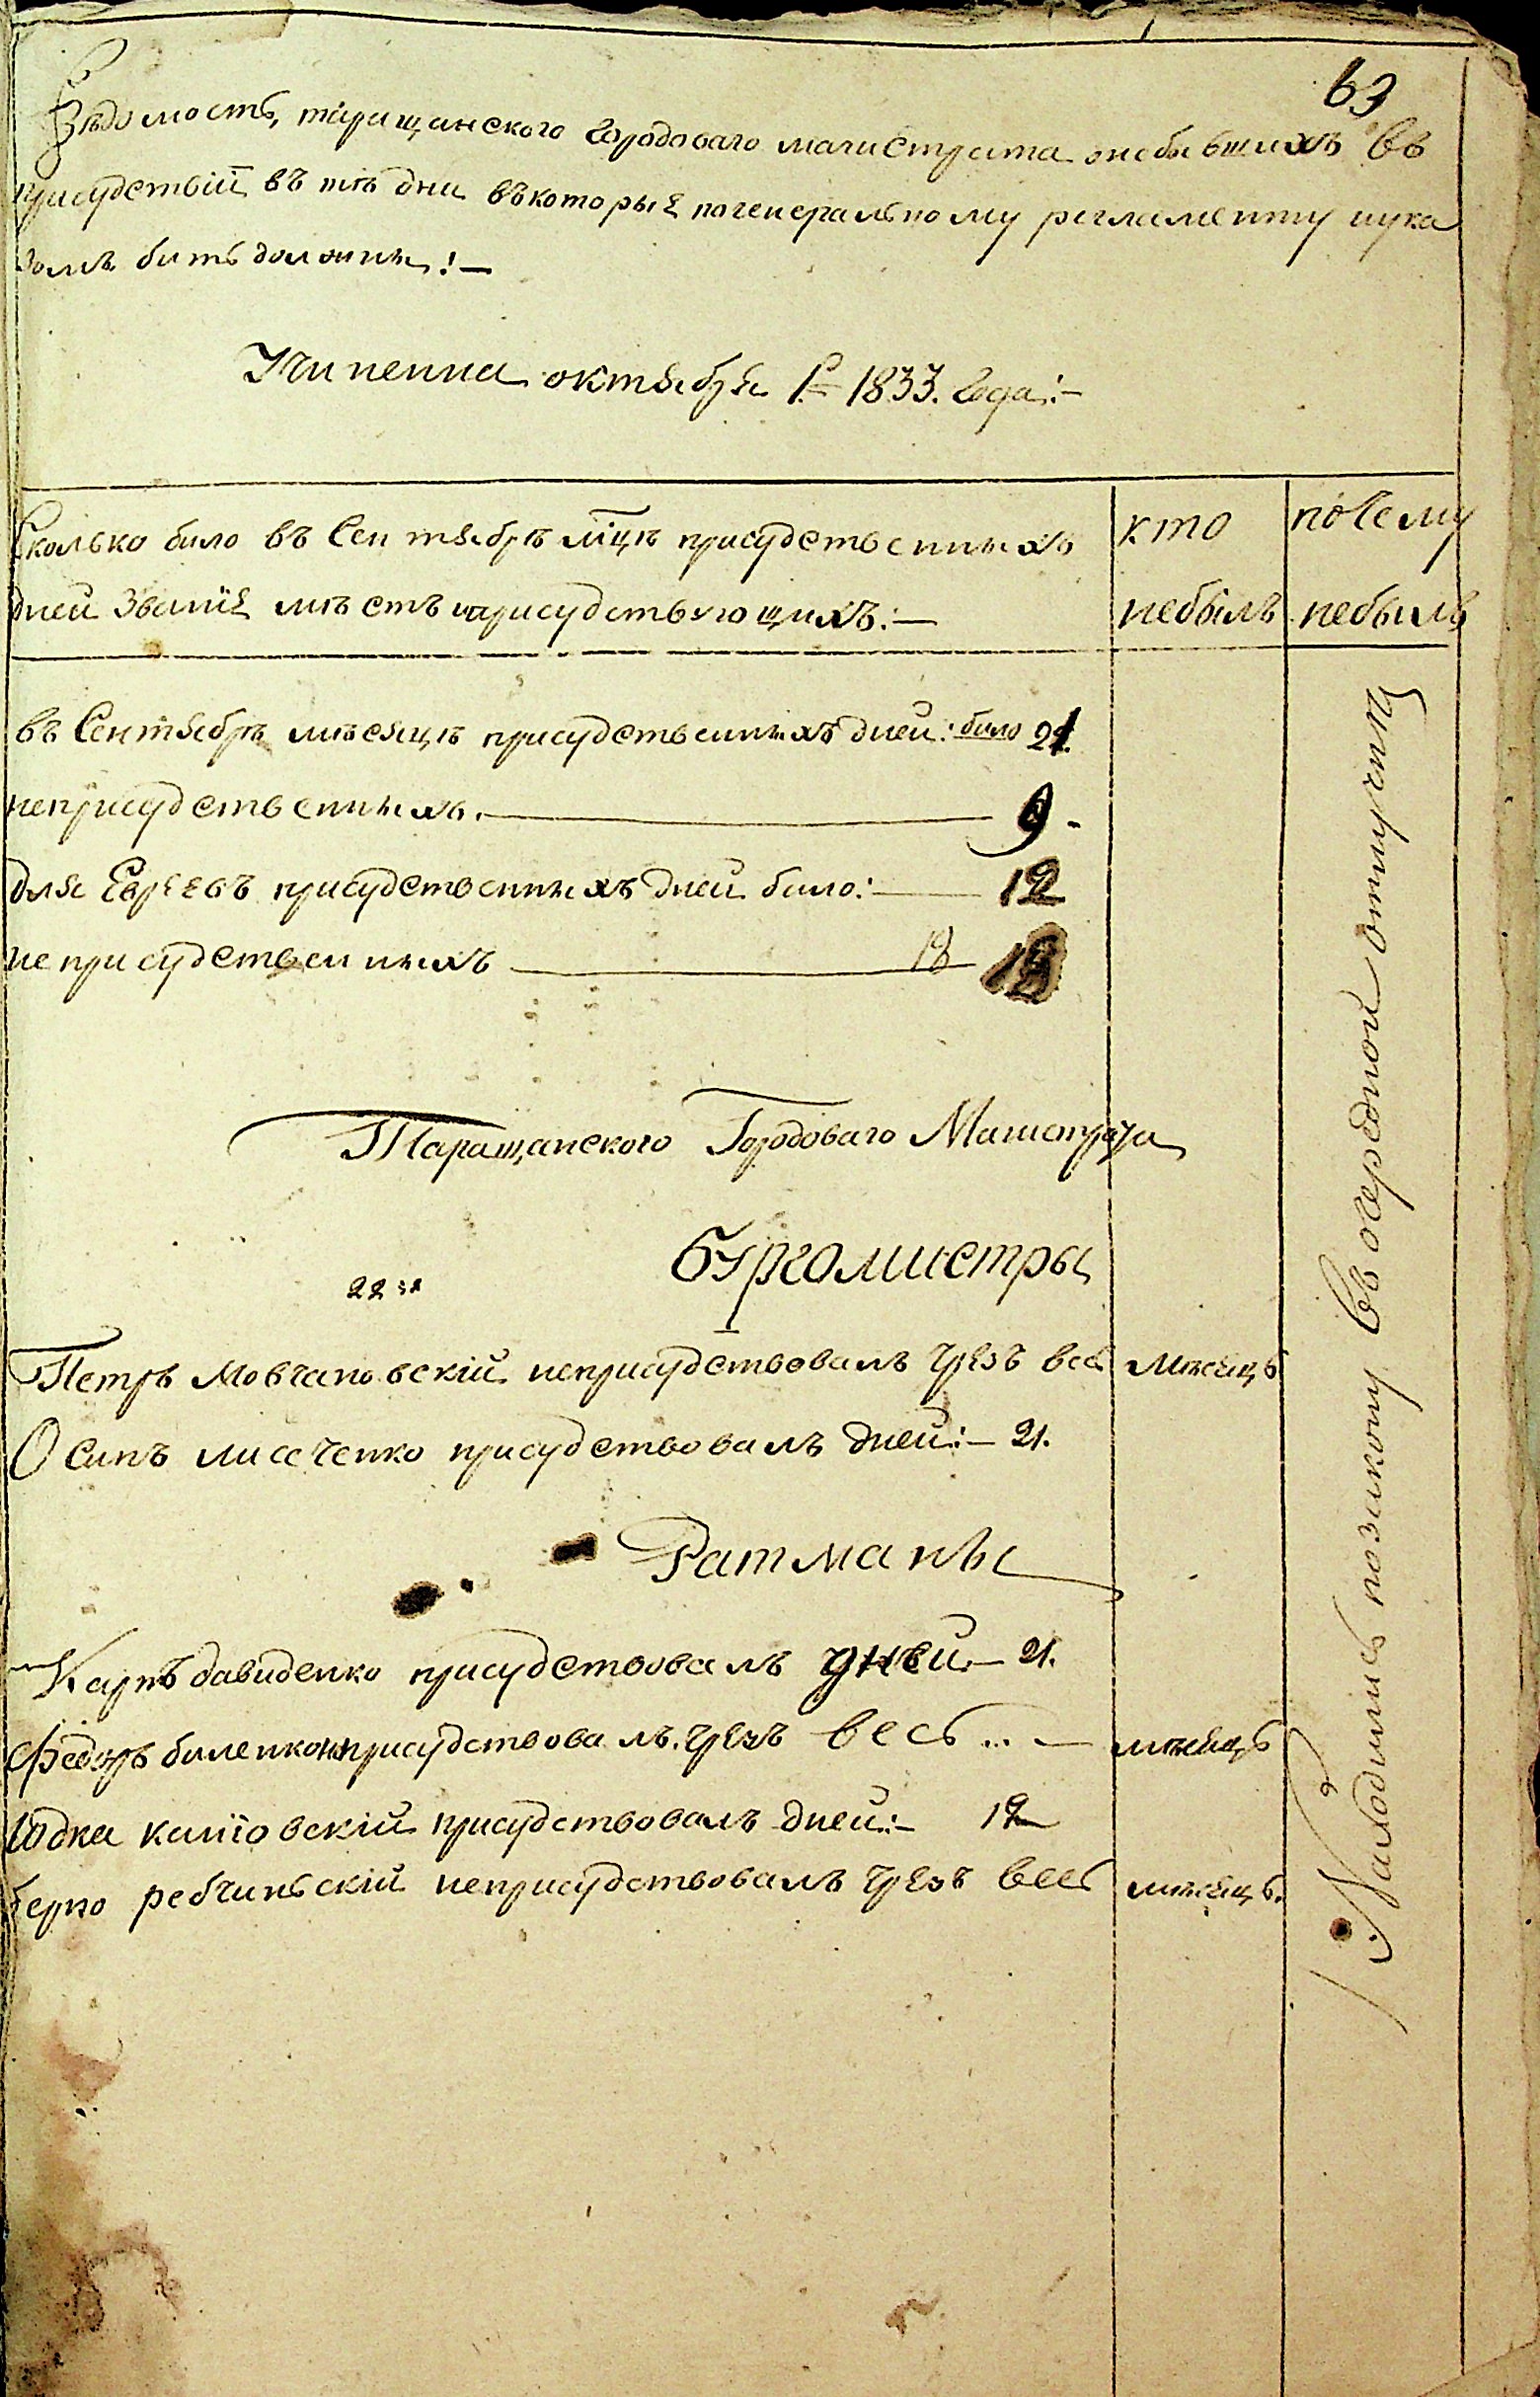 63
Вѣдомость, таращанского городоваго магистрата онебывшихъ въ
присудствій въ тѣ дни вѣкоторые погенеральному регламенту иука
зомъ бить должны:—
Учиненна октября 1= 1833. Года:—
Сколько било въ Сентябрѣ мцѣ присудственныхъ
дней Званїе мѣстъ иприсудствующихъ:—
кто
небылъ
почему
небылъ
въ Сентябрѣ мѣсяцѣ присудственныхъ дней: било 21.
неприсудственныхъ. — 9.-
для Евреевъ присудственныхъ дней било:— 12
не присудственныхъ — 18 18
Таращанского Городоваго Магистрата
Бургомистры
22
Петръ Мовчановскій неприсудствовалъ чрезъ весь мѣсяцъ
Осипъ лисеченко присудствовалъ дней:— 21.
Ратманы
Карпъ давиденко присудствовалъ дней:— 21.
Федоръ биленко неприсудствовалъ. чрезъ весь... — мѣсяцъ
Юдка каліовскій присудствовалъ дней:— 12
Берко ребчинскій неприсудствовалъ чрезъ весь мѣсяцъ.
Находились позакону въ очередной отлучкѣ